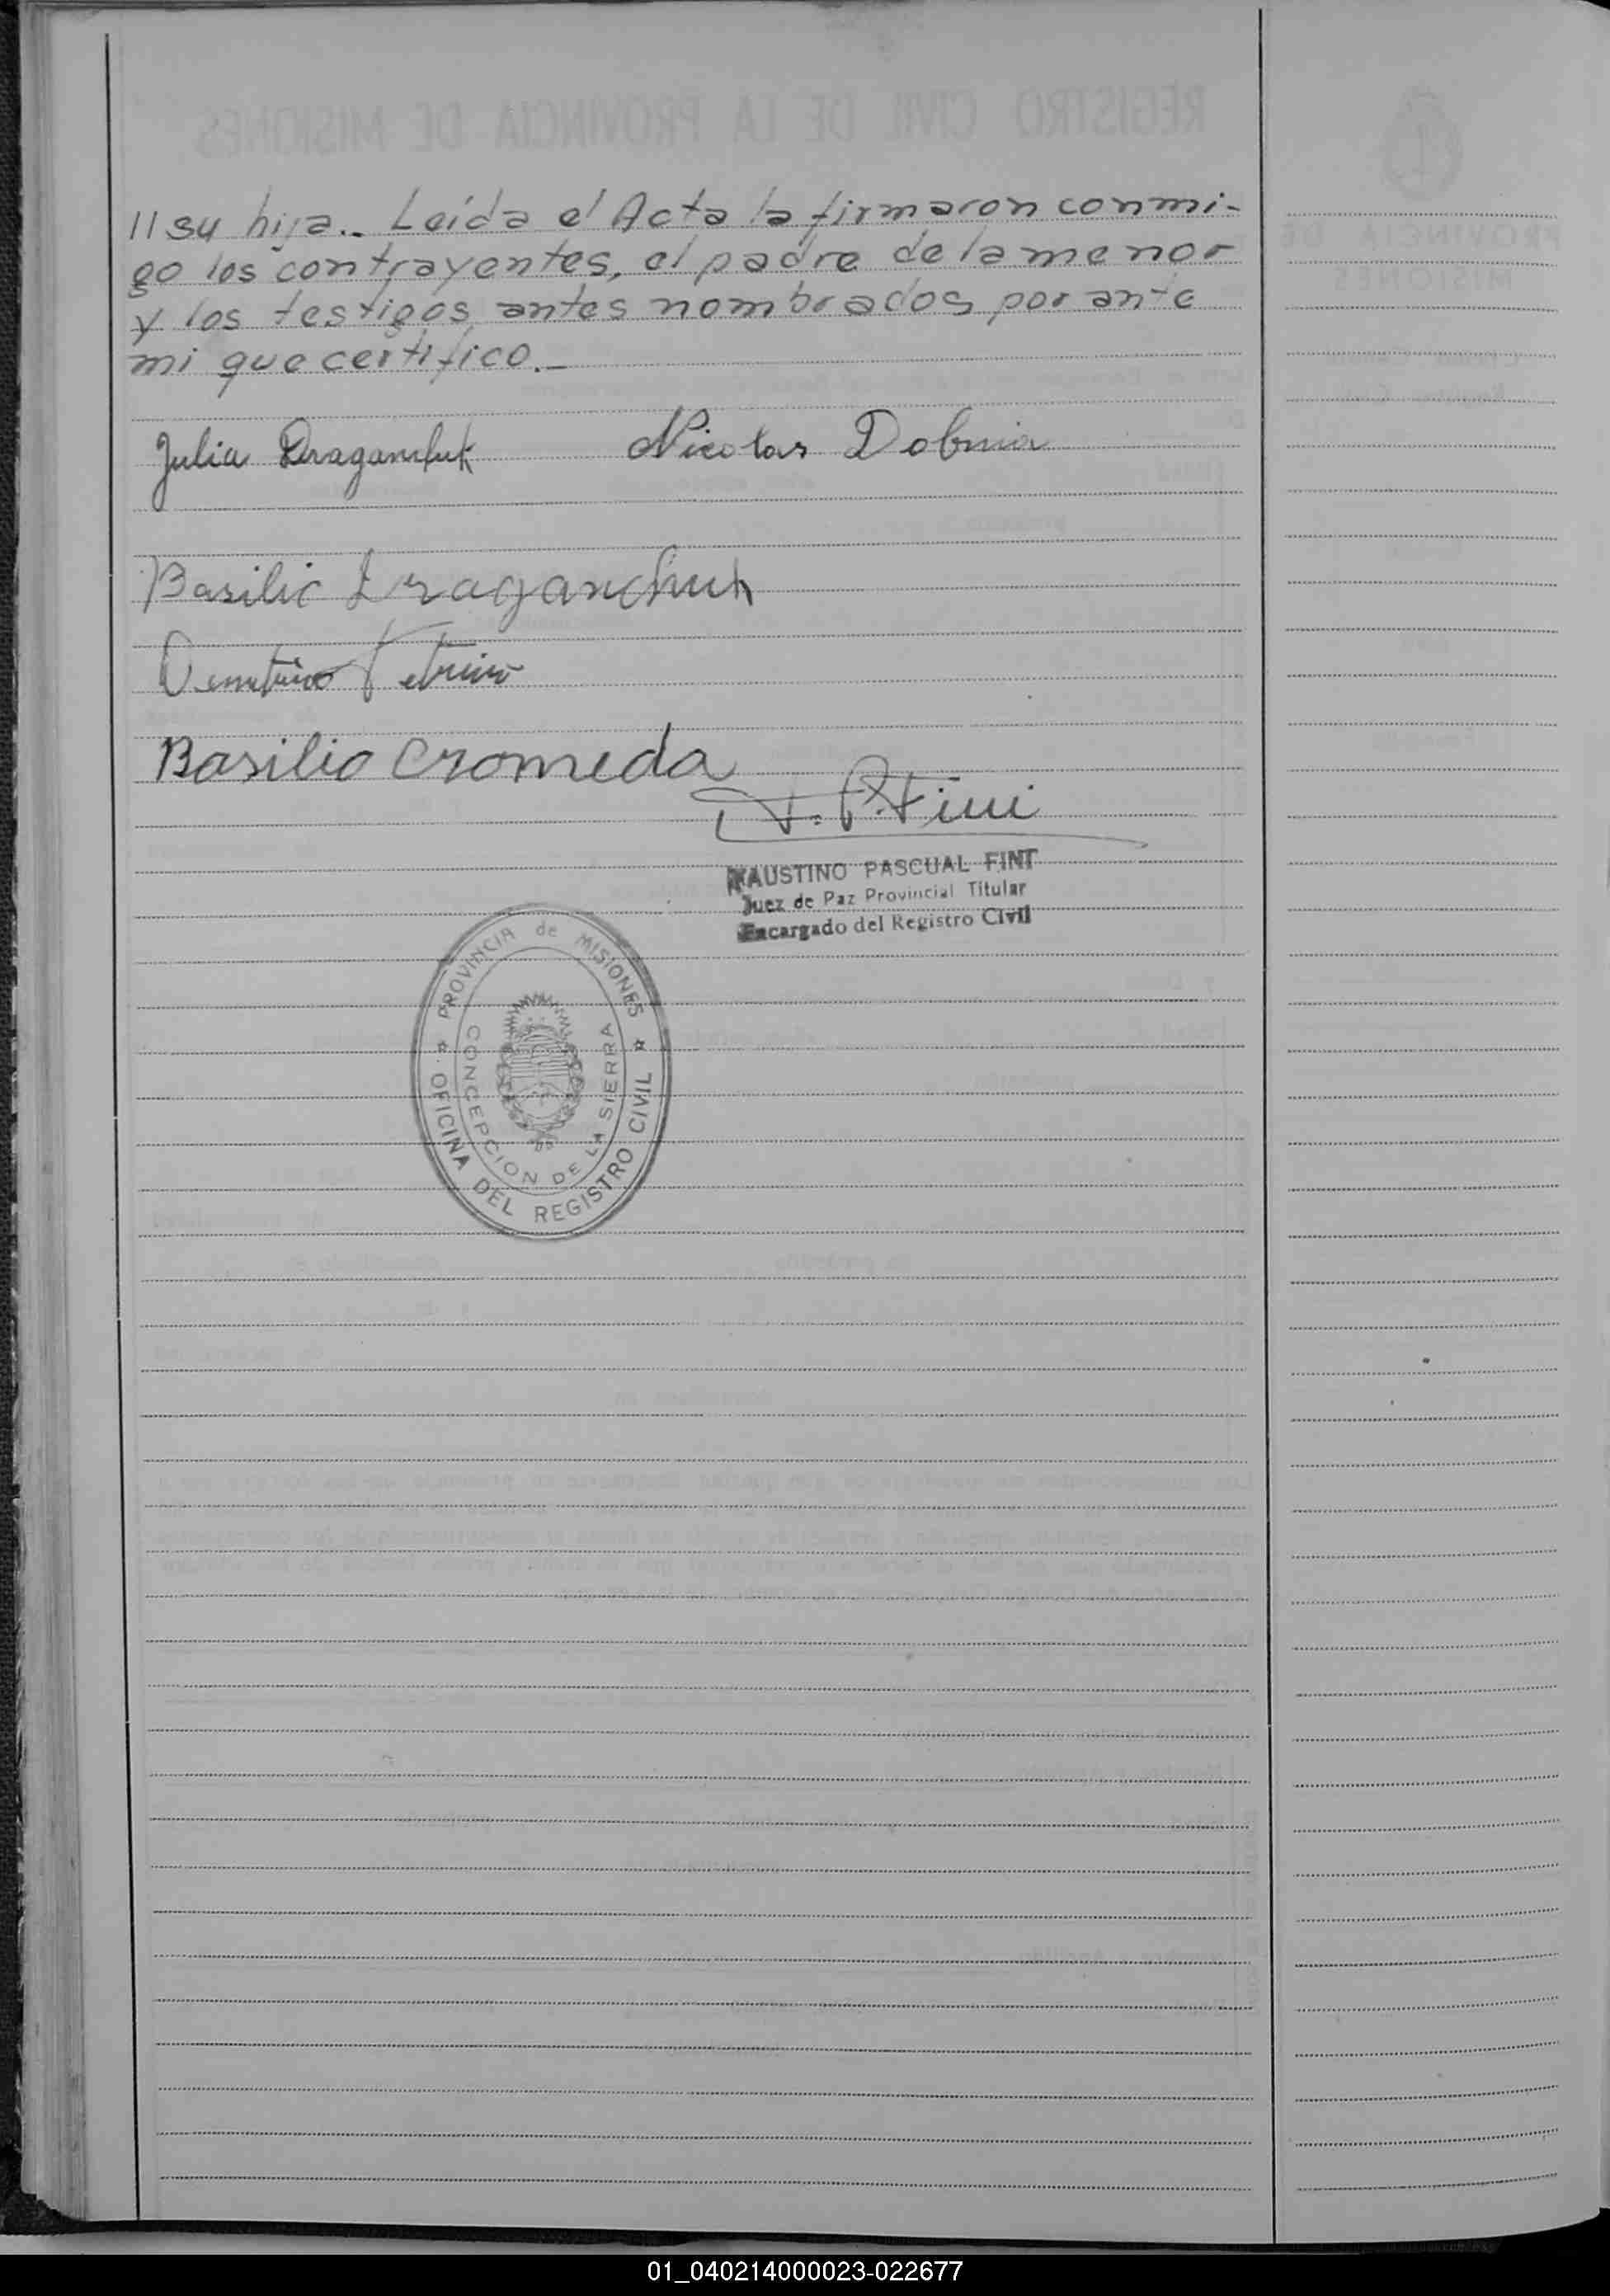 // su hija.. Leída el Acta la firmaron conmi-
go los contrayentes, el padre de la menor
y los testigos antes nombrados por ante
mi que certifico._
Julia Draganchuk Nicolas Dobnia
Basilio Draganchuk
Demetrio
Basilio Cromeda
FAUSTINO PASCUAL FINI
Juez de Paz Provincial Titular
Encargado del Registro Civil
PROVINCIA de MISIONES
CONCEPCION DE LA SIERRA
OFICINA DEL REGISTRO CIVIL
01_040214000023-022677